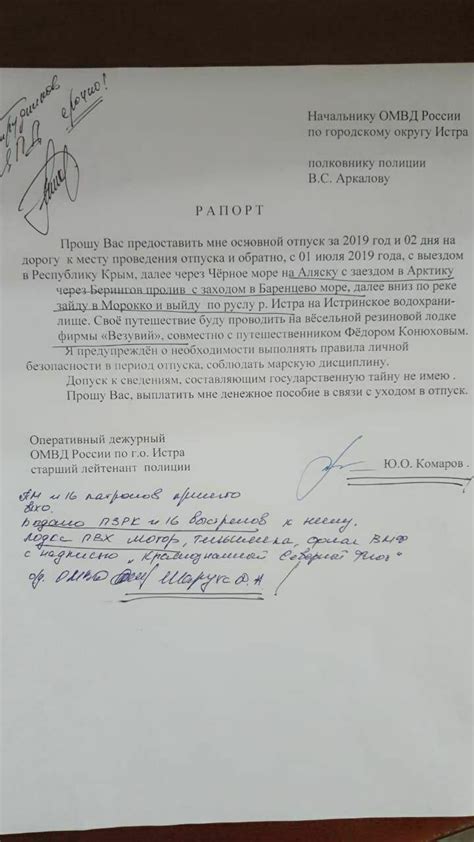 срочно!
Начальнику ОМВД России
по городскому округу Истра
полковнику полиции
В.С. Аркалову
РАПОРТ
Прошу Вас предоставить мне основной отпуск за 2019 год и 02 дня на
дорогу к месту проведения отпуска и обратно, с 01 июля 2019 года, с выездом
в Республику Крым, далее через Чёрное море на Аляску с заездом в Арктику
через Берингов пролив с заходом в Баренцево море, далее вниз по реке
зайду в Морокко и выйду по руслу р. Истра на Истринское водохрани-
лище. Своё путешествие буду проводить на вёсельной резиновой лодке
фирмы «Везувий», совместно с путешественником Фёдором Конюховым.
Я предупреждён о необходимости выполнять правила личной
безопасности в период отпуска, соблюдать марскую дисциплину.
Допуск к сведениям, составляющим государственную тайну не имею .
Прошу Вас, выплатить мне денежное пособие в связи с уходом в отпуск.
Оперативный дежурный
ОМВД России по г.о. Истра
старший лейтенант полиции
Ю.О. Комаров .
и 16 патронов принято
Выдано ПЗРК и 16 выстрелов к нему,
лодка ПВХ мотор, тельняшка, флаг ВМФ
с надписью „Краснознаменный Северный Флот"
ОМВД